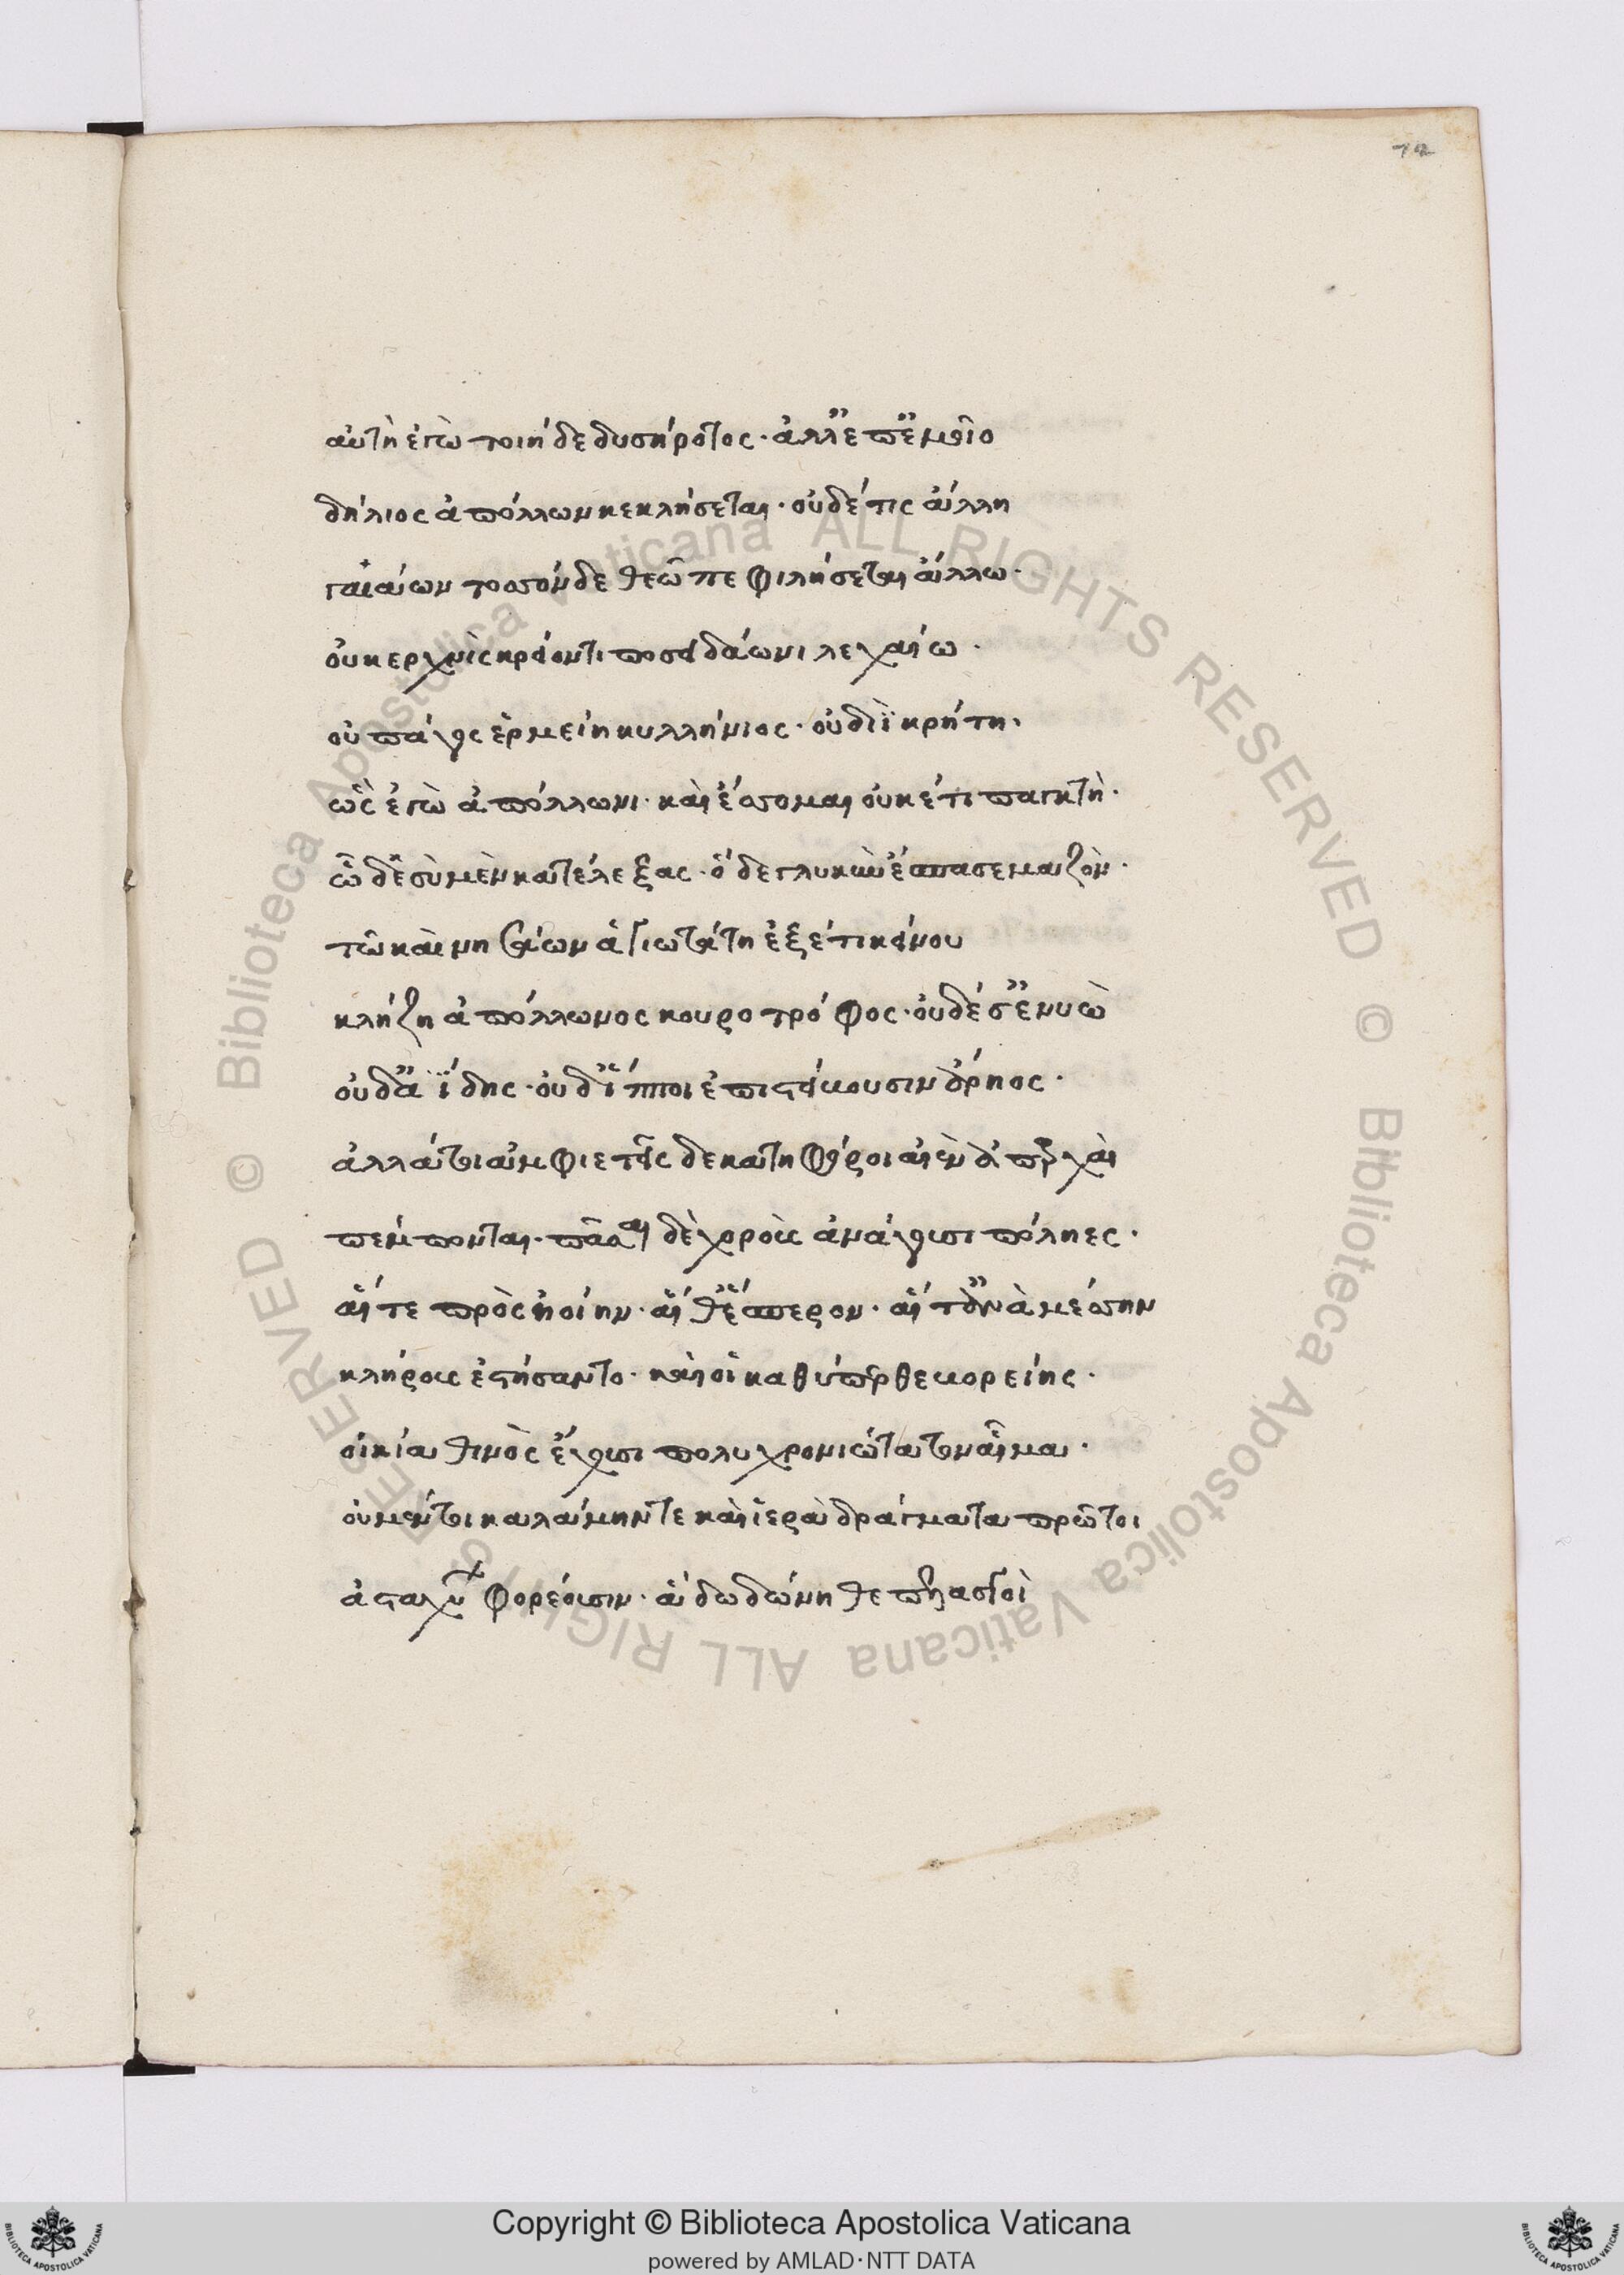 72
αὐτὴ ἐγὼ τοιήδε δυσήροτος· ἀλλ' ἐπ' ἐμεῖο
δήλιος ἀπόλλων κεκλήσεται· οὐδέ τις ἄλλη
γαιάων τοσόνδε θεῶ πεφιλήσεται ἄλλω·
οὐ κερχνὶς κρείοντι ποσειδάωνι λεχαίω·
οὐ πάγος ἑρμείη κυλλήνιος· οὐ διὶ κρήτη·
ὡς ἐγὼ ἀπόλλωνι· καὶ ἔσσομαι οὐκέτι πλαγκτή·
ὧδε σὺ μὲν κατέλεξας· ὁ δὲ γλυκὺν ἔσπασε μαζόν·
τῶ καὶ νησάων ἁγιωτάτη ἐξέτι κείνου
κλήζη ἀπόλλωνος κουροτρόφος· οὐδέ σ' ἐνυὼ
οὐδ' ἀΐδης· οὐδ' ἵπποι ἐπιστείβουσιν ἄρηος·
ἀλλά τοι ἀμφιετεῖς δεκατηφόροι αἰὲν ἀπαρχαὶ
πέμπονται· πᾶσαι δὲ χοροὺς ἀνάγουσι πόληες·
αἵ τε πρὸς ἠοίην· αἵ θ' ἕσπερον· αἵ τ' ἀνὰ μέσσην
κλήρους ἐστήσαντο· καὶ οἳ καθύπερθε βορείης·
οἰκία θινὸς ἔχουσι πολυχρονιώτατον αἷμα·
οἱ μέν τοι καλάμην τε καὶ ἱερὰ δράγματα πρῶτοι
ἀσταχύων φορέουσιν· ἃ δωδώνηθε πελασγοὶ
Copyright © Biblioteca Apostolica Vaticana
powered by AMLAD·NTT DATA